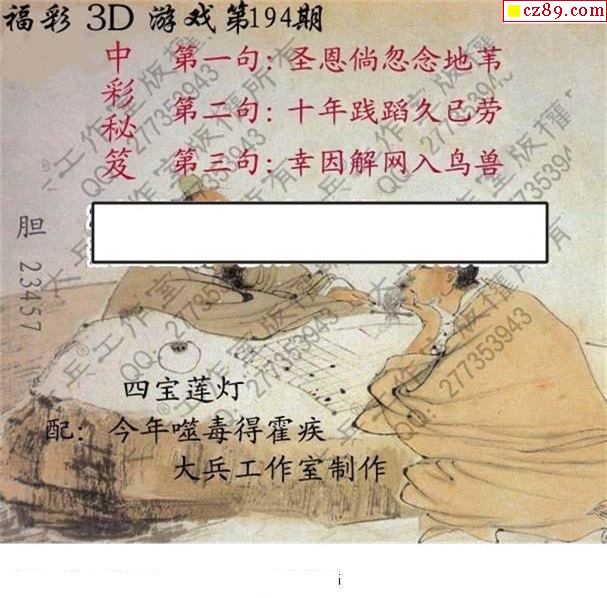 福彩 3D 游戏第194期
cz89.com
中彩秘笈
第一句：圣恩倘忽念地苇
第二句：十年践蹈久已劳
第三句：幸因解网入鸟兽
胆 23457
四宝莲灯
配：今年噬毒得霍疾
大兵工作室制作
大兵工作室版权所有
QQ:277353943
i